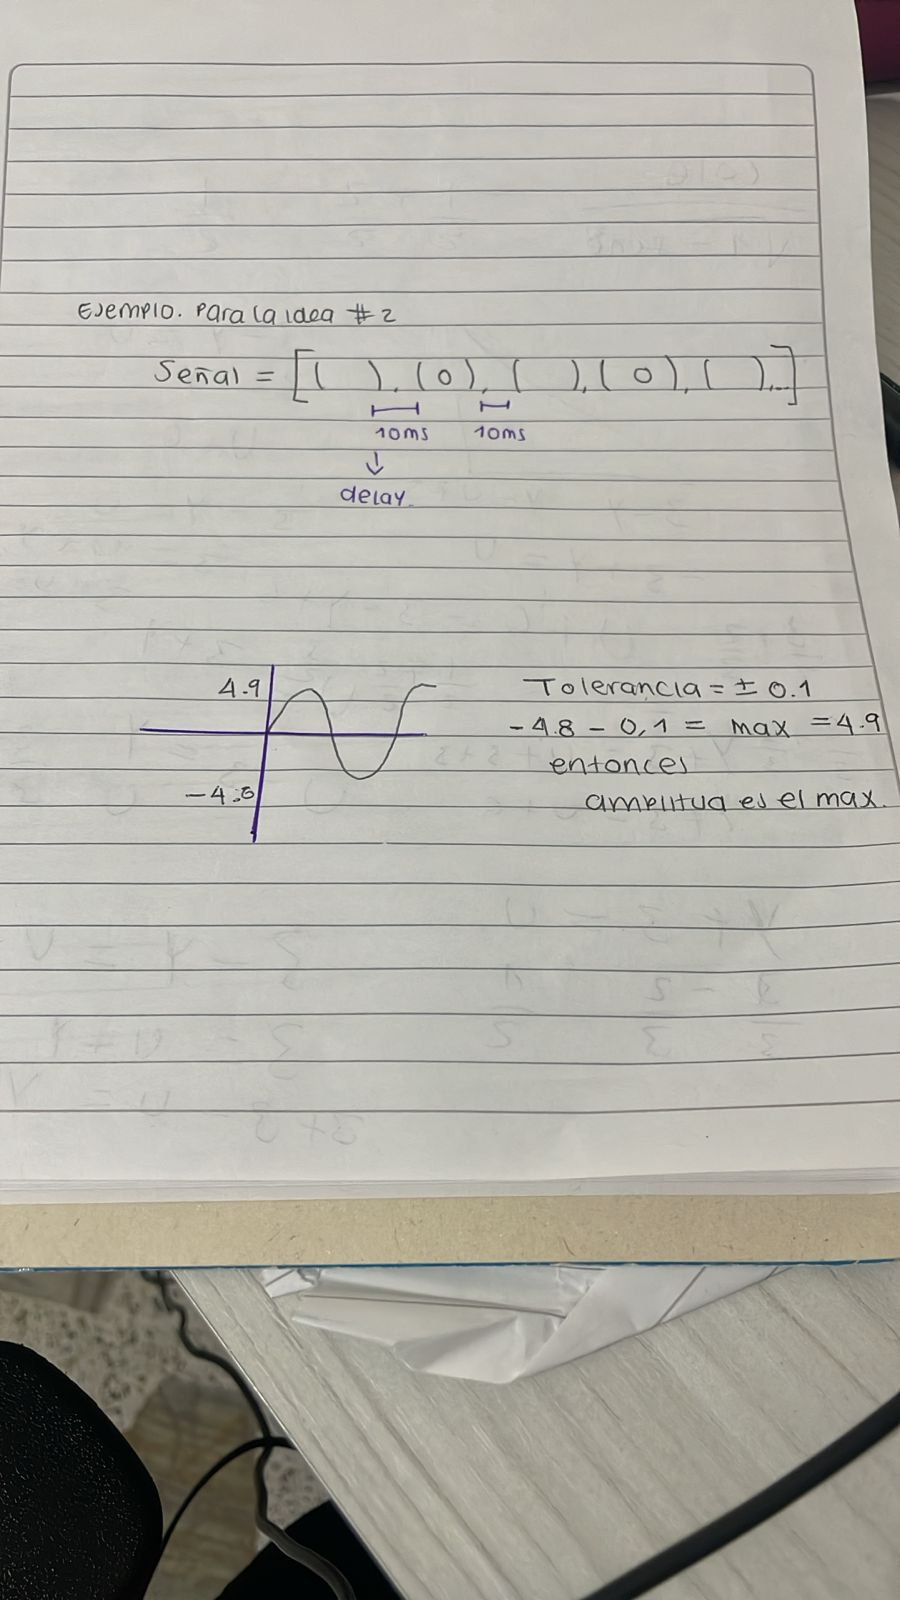 Ejemplo. Para la idea #2
Señal = [( ), (0), ( ), (0), ( ),...]
10ms 10ms
↓
delay.
4.9
-4.8
Tolerancia = ± 0.1
-4.8 - 0,1 = max = 4.9
entonces
amplitud es el max.